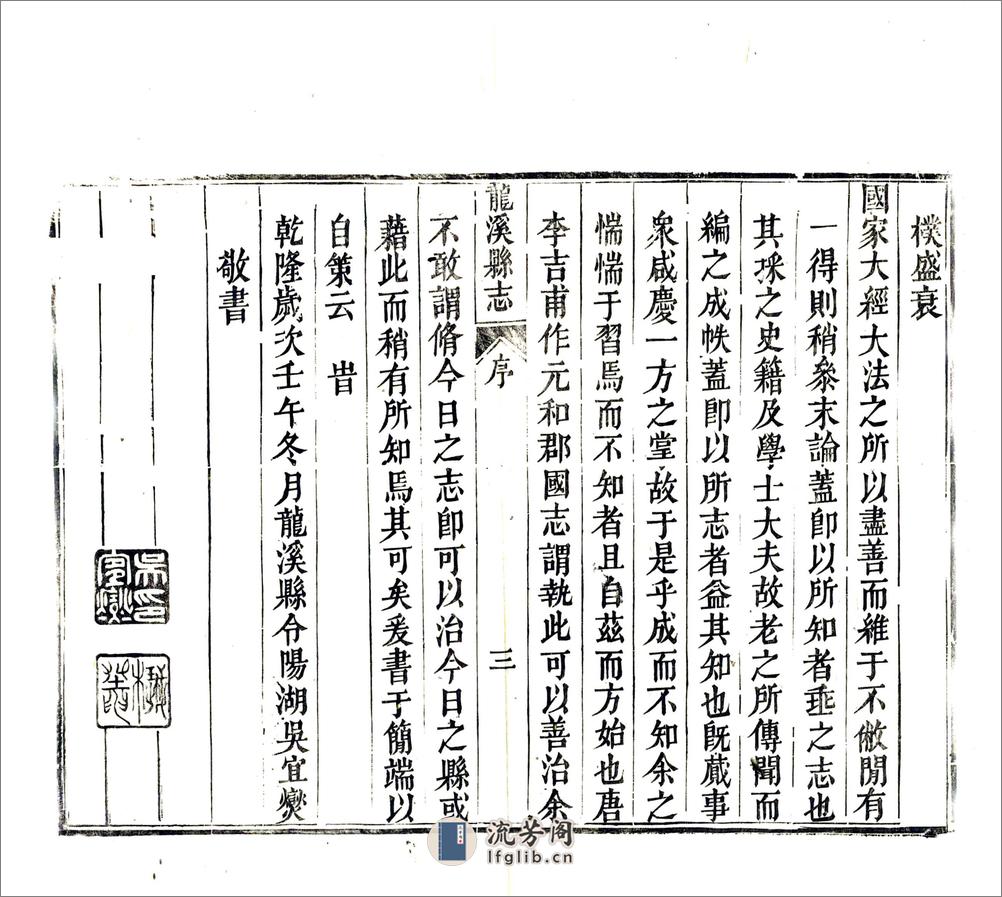 樸盛衰
國家大經大法之所以盡善而維于不敝閒有
一得則稍叅末論蓋卽以所知者埀之志也
其採之史籍及學士大夫故老之所傳聞而
編之成帙蓋卽以所志者益其知也旣蕆事
衆咸慶一方之堂故于是乎成而不知余之
惴惴于習焉而不知者且自茲而方始也唐
李吉甫作元和郡國志謂執此可以善治余
龍溪縣志 序 三
不敢謂脩今日之志卽可以治今日之縣或
藉此而稍有所知焉其可矣爰書于簡端以
自策云 旹
乾隆歲次壬午冬月龍溪縣令陽湖吳宜爕
敬書
吳宜爕印
流芳阁
lfglib.cn